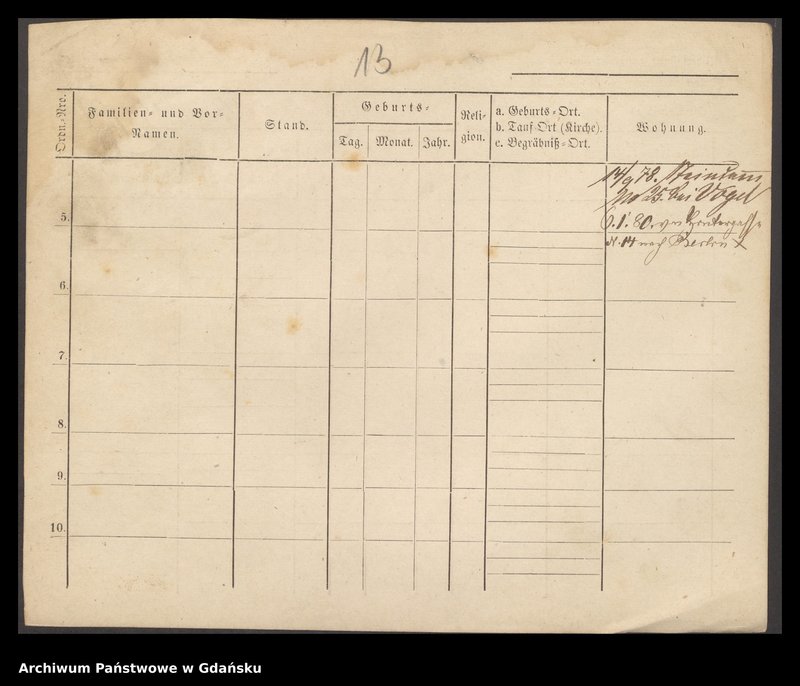 13
Ordn.=Nro.
Familien= und Vor=
Namen.
Stand.
Geburts=
Tag.
Monat.
Jahr.
Reli=
gion.
a. Geburts=Ort.
b. Tauf=Ort (Kirche).
c. Begräbniß=Ort.
Wohnung.
14/9 78. Steindamm
No 25. bei Vogel
5.
6. 1. 80. von Hintergasse
N. 14 nach Berlin
6.
7.
8.
9.
10.
Archiwum Państwowe w Gdańsku